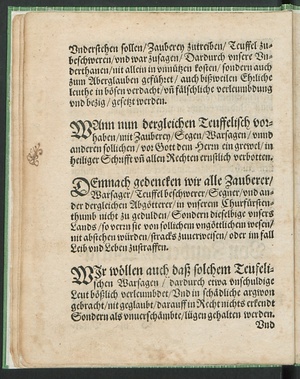 Vnderstehen sollen / Zauberey zutreiben / Teuffel zu-
beschweren / vnd war zusagen / Dardurch vnsere Vn-
derthanen / nit allein in vnnützen kosten / sondern auch
zum Aberglauben gefüret / auch bißweilen Ehrliche
leuthe in bösen verdacht / vñ fälschliche verleumbdung
vnd bezig / gesetzt werden.
WAnn nun dergleichen Teuffelisch vor-
haben / mit Zauberey / Segen / Warsagen / vnnd
anderen sollichen / vor Gott dem Herrn ein grewel / in
heiliger Schrifft vñ allen Rechten ernstlich verbotten.
DEmnach gedencken wir alle Zauberer /
Warsager / Teuffelbeschwerer / Segner / vnd an-
der dergleichen Abgötterer / in vnserem Churfürsten-
thumb nicht zu gedulden / Sondern dieselbige vnsers
Lands / so wern sie von sollichem vngöttlichem wesen /
nit abstehen würden / stracks zuuerweisen / oder im fall
Leib vnd Leben zustraffen.
WIr wöllen auch daß solchem Teufeli-
schen Warsagen / dardurch etwa vnschuldige
Leut bößlich verleumbdet / Vnd in schädliche argwon
gebracht / nit geglaubt / darauff in Recht nichts erkendt
Sondern als vnuerschämbte / lügen gehalten werden.
Vnd